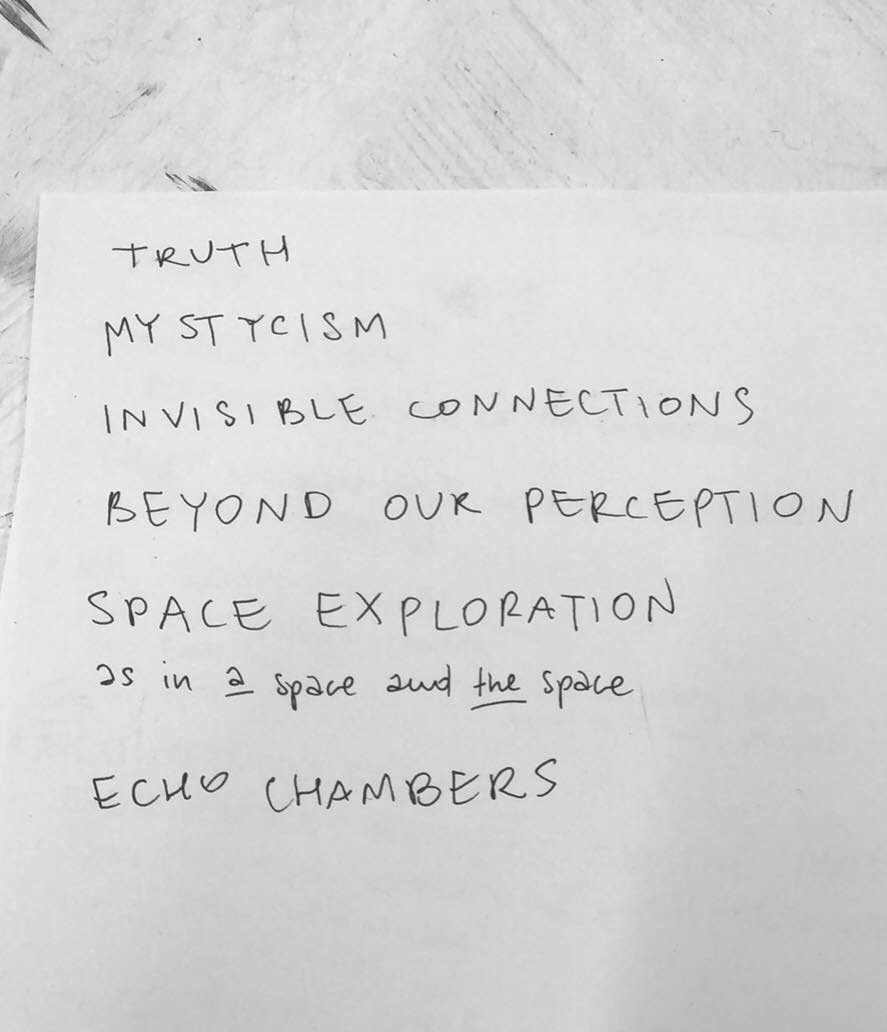 TRUTH
MYSTYCISM
INVISIBLE CONNECTIONS
BEYOND OUR PERCEPTION
SPACE EXPLORATION
as in a space and the space
ECHO CHAMBERS